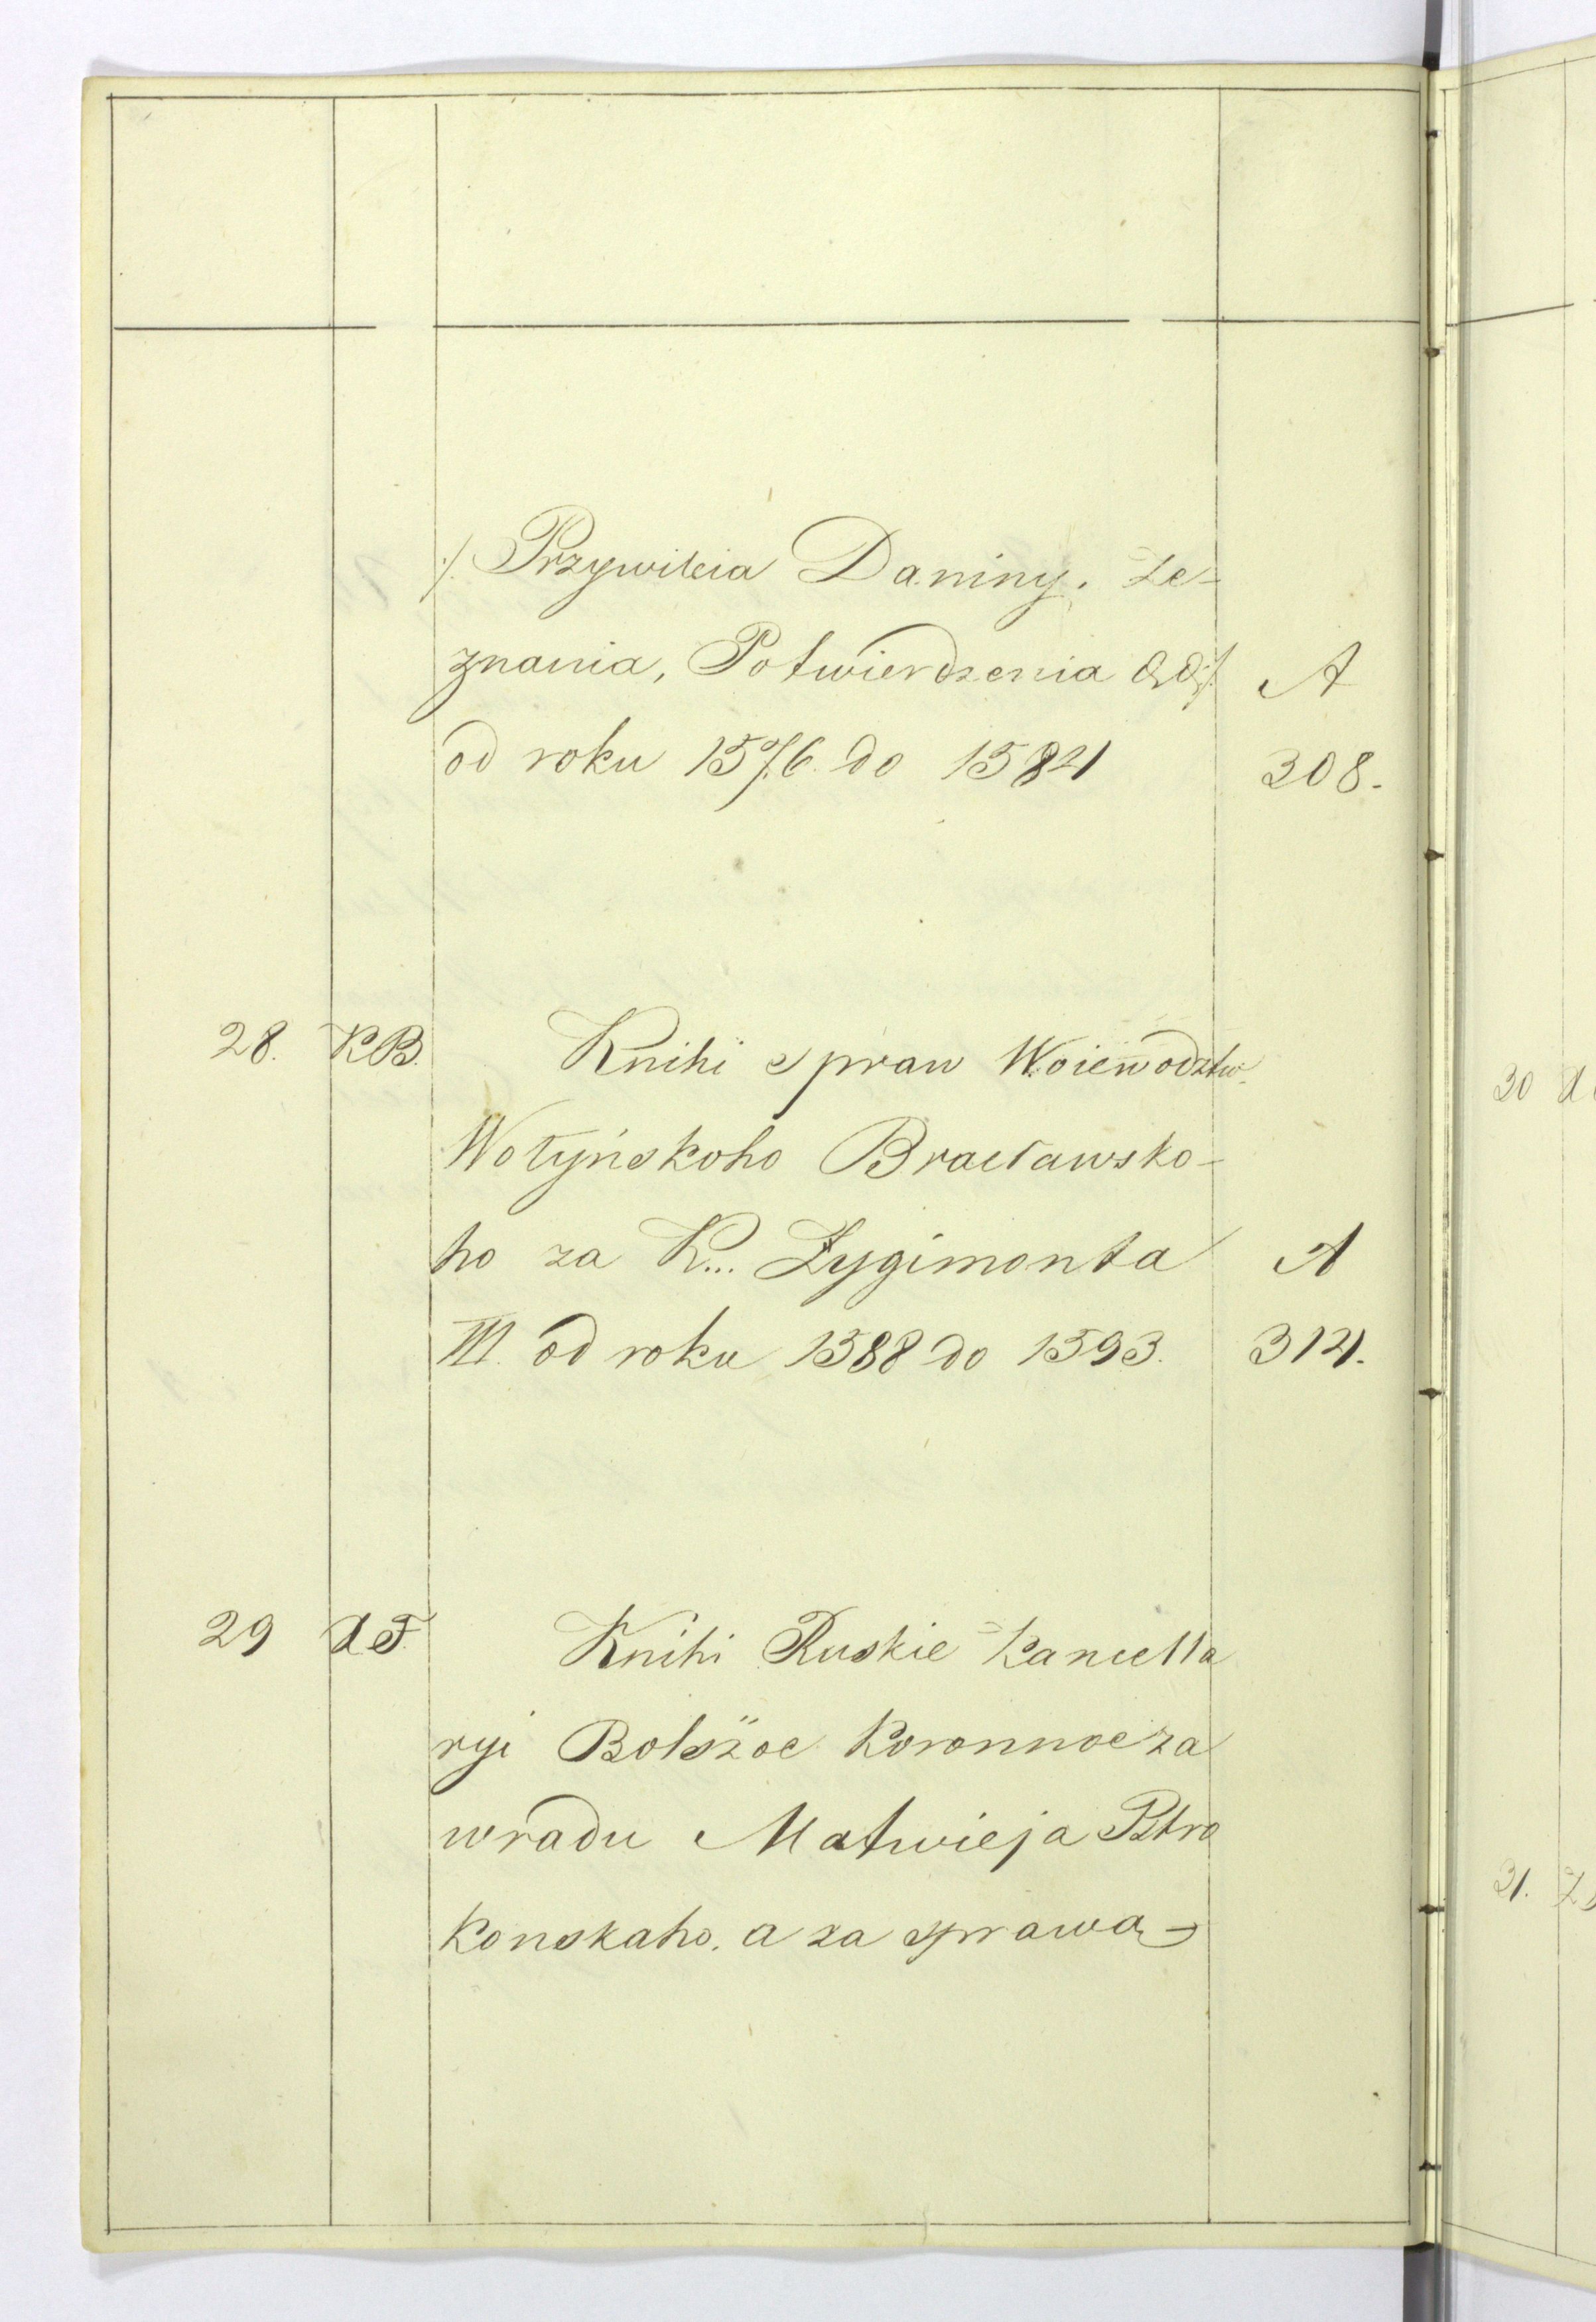 /. Przywileia Daniny. Ze-
znania, Potwierdzenia &&./. A
od roku 1576. do 1584 308.
28. KB. Knihi spraw Woiewodztw.
Wołyńskoho Bracławsko-
ho za K... Zygimonta A
III. od roku 1588 do 1593. 314.
29 Knihi Ruskie Kancella
ryi Bolszoe Koronnoe za
wradu Matwieja Pstro
Konskaho. a za sprawą
30
31.